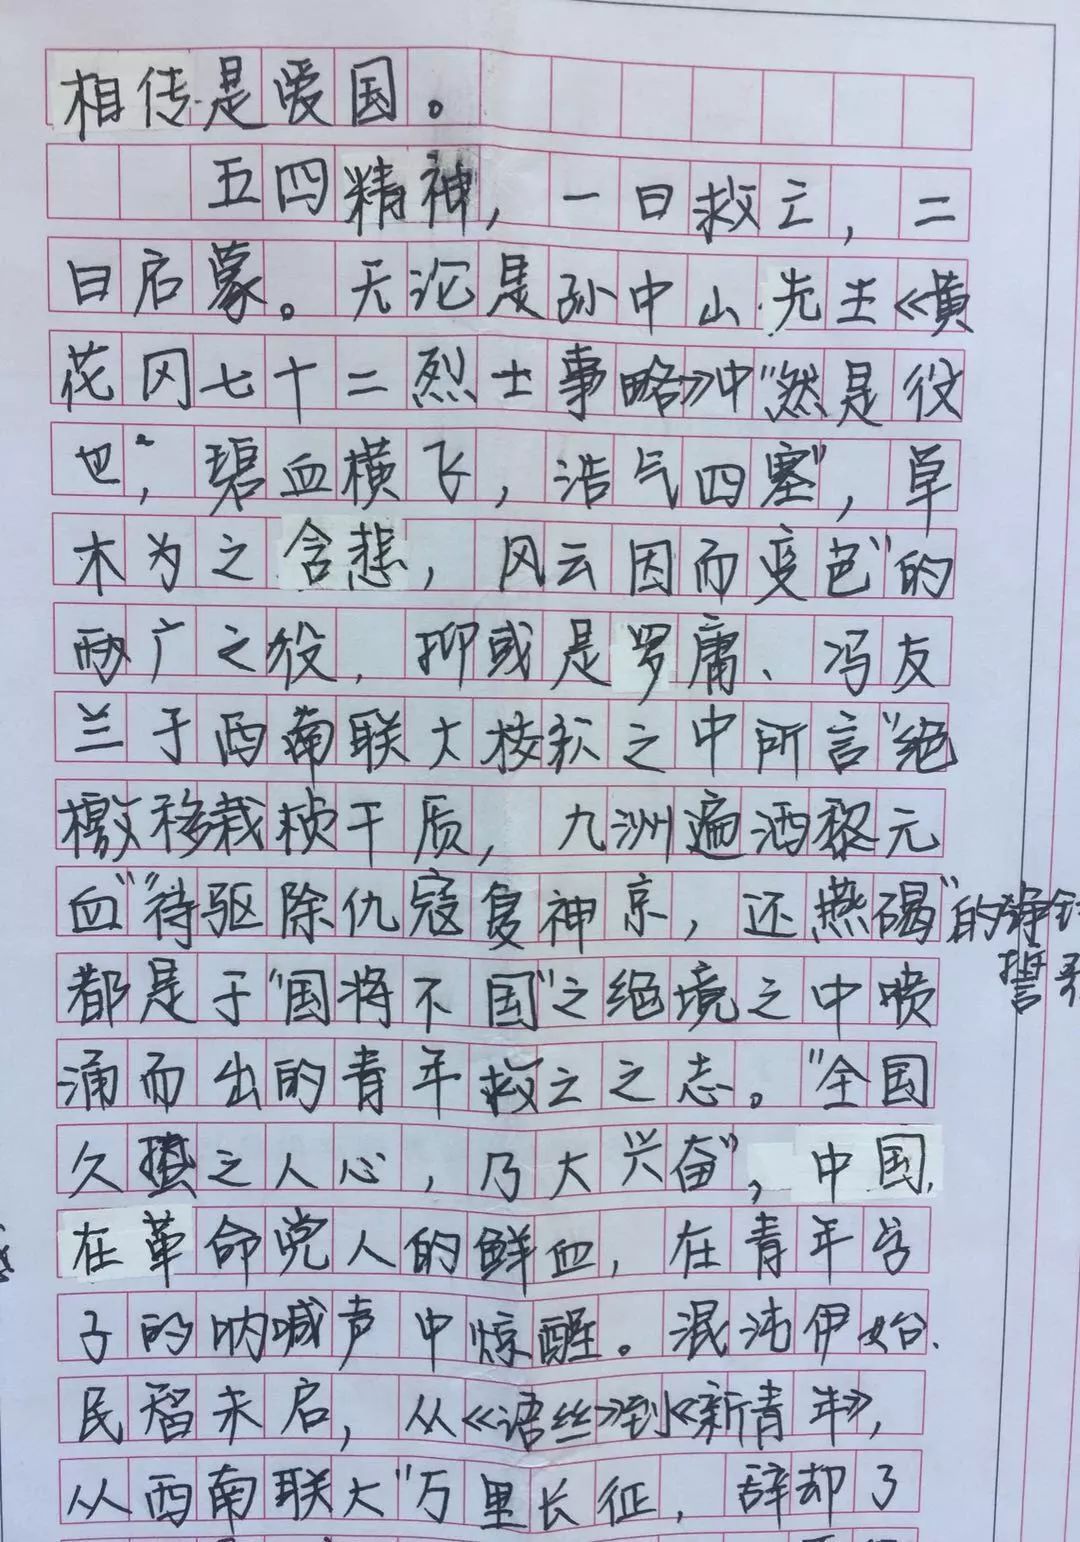 相传是爱国。
五四精神，一曰救亡，二
曰启蒙。无论是孙中山先生《黄
花冈七十二烈士事略》中"然是役
也"，碧血横飞，浩气四塞"，草
木为之含悲，风云因而变色"的
两广之役，抑或是罗庸、冯友
兰于西南联大校歌之中所言"绝
徼移栽桢干质，九洲遍洒黎元
血""待驱除仇寇复神京，还燕碣"的铮铮
誓
都是于"国将不国"之绝境之中喷
涌而出的青年救亡之志。"全国
久蛰之人心，乃大兴奋"，中国
在革命党人的鲜血，在青年学
子的呐喊声中惊醒。混沌伊始、
民智未启，从《语丝》到《新青年》，
从西南联大"万里长征，辞却了